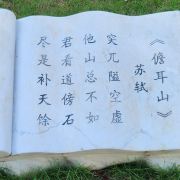 《儋耳山》
苏轼
突兀隘空虚
他山总不如
君看道傍石
尽是补天馀